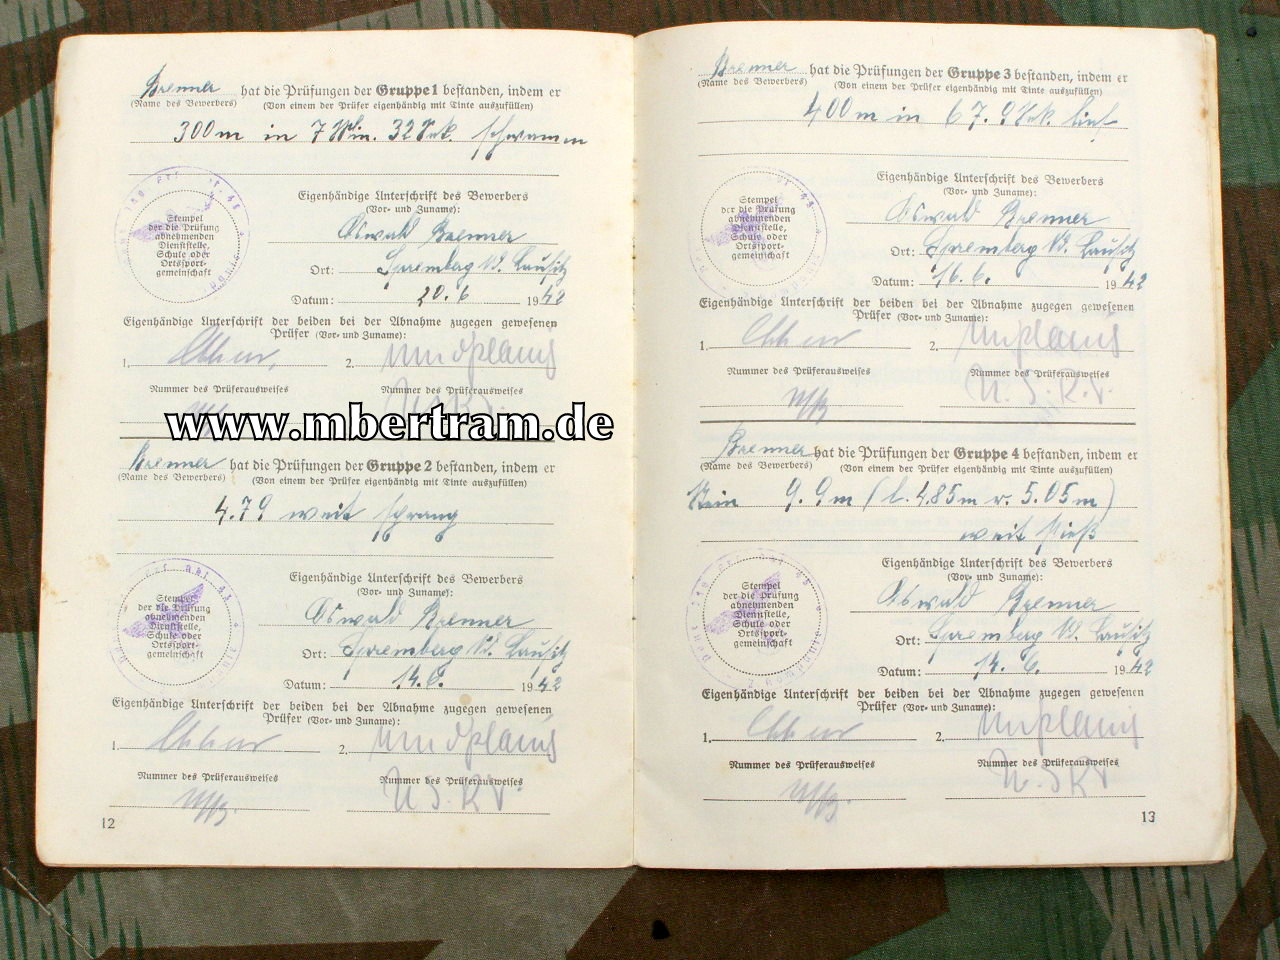 Brenner hat die Prüfungen der Gruppe 1 bestanden, indem er
(Name des Bewerbers) (Von einem der Prüfer eigenhändig mit Tinte auszufüllen)
300 m in 7 Min. 32 Sek. schwamm
Eigenhändige Unterschrift des Bewerbers
(Vor- und Zuname):
Stempel
der die Prüfung
abnehmenden
Dienststelle,
Schule oder
Ortssport-
gemeinschaft
Oswald Brenner
Ort: Spremberg N. Lausitz
Datum: 20.6 1942
Eigenhändige Unterschrift der beiden bei der Abnahme zugegen gewesenen
Prüfer (Vor- und Zuname):
1. 2.
Nummer des Prüferausweises Nummer des Prüferausweises
www.mbertram.de
Brenner hat die Prüfungen der Gruppe 2 bestanden, indem er
(Name des Bewerbers) (Von einem der Prüfer eigenhändig mit Tinte auszufüllen)
4.79 weit sprang
Eigenhändige Unterschrift des Bewerbers
(Vor- und Zuname):
Stempel
der die Prüfung
abnehmenden
Dienststelle,
Schule oder
Ortssport-
gemeinschaft
Oswald Brenner
Ort: Spremberg N. Lausitz
Datum: 14.6. 1942
Eigenhändige Unterschrift der beiden bei der Abnahme zugegen gewesenen
Prüfer (Vor- und Zuname):
1. 2.
Nummer des Prüferausweises Nummer des Prüferausweises
N.S.K.V.
12
Brenner hat die Prüfungen der Gruppe 3 bestanden, indem er
(Name des Bewerbers) (Von einem der Prüfer eigenhändig mit Tinte auszufüllen)
400 m in 67.9 Sek. lief
Eigenhändige Unterschrift des Bewerbers
(Vor- und Zuname):
Stempel
der die Prüfung
abnehmenden
Dienststelle,
Schule oder
Ortssport-
gemeinschaft
Oswald Brenner
Ort: Spremberg N. Lausitz
Datum: 16.6. 1942
Eigenhändige Unterschrift der beiden bei der Abnahme zugegen gewesenen
Prüfer (Vor- und Zuname):
1. 2.
Nummer des Prüferausweises Nummer des Prüferausweises
N.S.K.V.
Brenner hat die Prüfungen der Gruppe 4 bestanden, indem er
(Name des Bewerbers) (Von einem der Prüfer eigenhändig mit Tinte auszufüllen)
Stein 9.9 m (l. 4.85 m r. 5.05 m)
weit stieß
Eigenhändige Unterschrift des Bewerbers
(Vor- und Zuname):
Stempel
der die Prüfung
abnehmenden
Dienststelle,
Schule oder
Ortssport-
gemeinschaft
Oswald Brenner
Ort: Spremberg N. Lausitz
Datum: 14.6. 1942
Eigenhändige Unterschrift der beiden bei der Abnahme zugegen gewesenen
Prüfer (Vor- und Zuname):
1. 2.
Nummer des Prüferausweises Nummer des Prüferausweises
N.S.K.V.
13